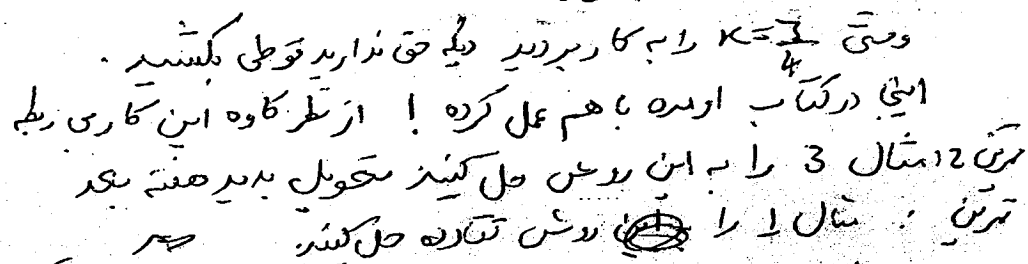 وقتی K=3/4 را به کار بردید دیگه حق ندارید قوطی بکشید.
اینجا در کتاب اومده با هم عمل کرده! از نظر کاوه این کار بی ربطه
تمرین 2: مثال 3 را به این روش حل کنید تحویل بدید هفته بعد
تمرین: مثال 1 را روش تتاوده حل کنید.